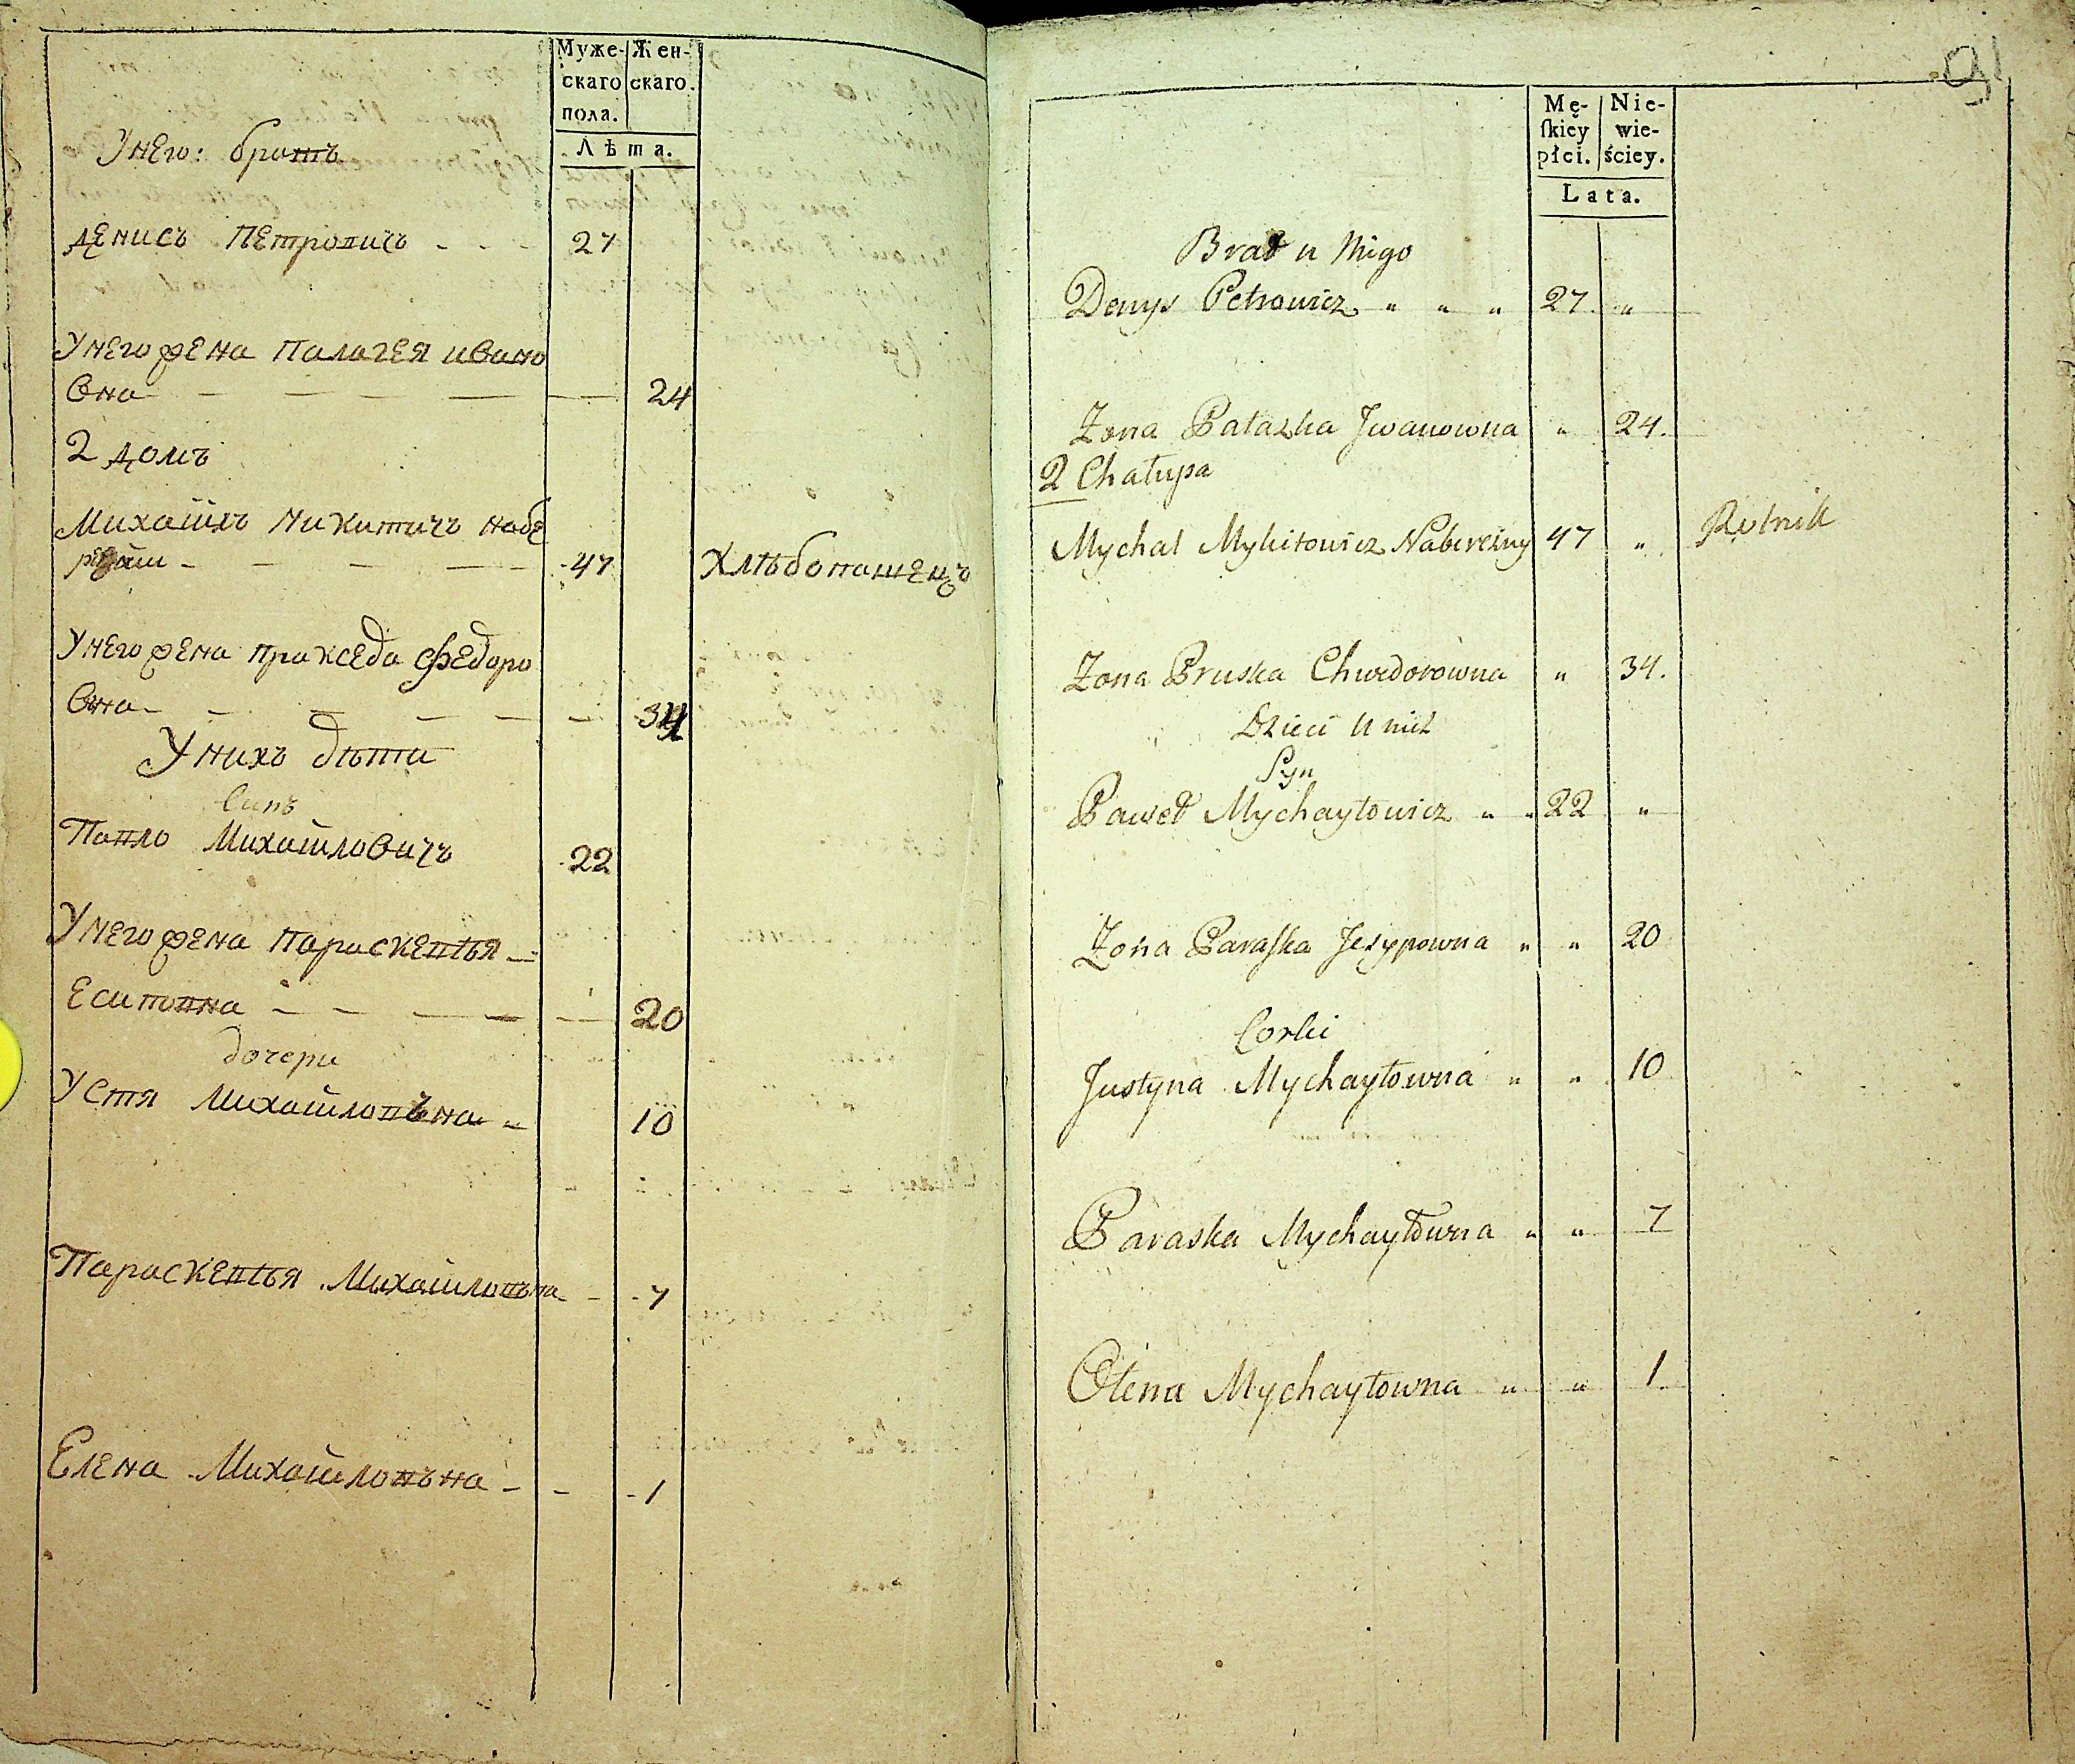 Муже-
скаго
пола.
Жен-
скаго.
Лѣта.
У него: братъ
Денисъ Петровичъ - - - 27
У него жена Палагея ивано
вна - - - - - 24
2 домъ
Михайлъ Никитичъ набе
режни - - - - 47 Хлѣбопашецъ
У него жена пракседа федоро
вна - - - - - - 34
У нихъ дѣти
Синъ
Павло Михайловичъ 22
У него жена параскевья -
Есиповна - - - - - 20
дочери
Устя Михайловъна - 10
Параскевья Михайловъна - - 7
Елена Михайловъна - - - 1
91
Mę-
skiey
płci.
Nie-
wie-
ściey.
Lata.
Brat u Nigo
Denys Petrowicz " " " 27 "
Żona Pałazka Jwanowna " 24.
2 Chałupa
Mychal Mykitowicz Nabereżny 47 " Rolnik
Żona Pruska Chwedorowna " 34.
Dzieci U nich
Syn
Paweł Mychayłowicz " " 22 "
Żona Paraska Jesypowna " " 20
Corki
Justyna Mychayłowna " " 10
Paraska Mychayłowna " " 7
Ołena Mychayłowna " " 1.